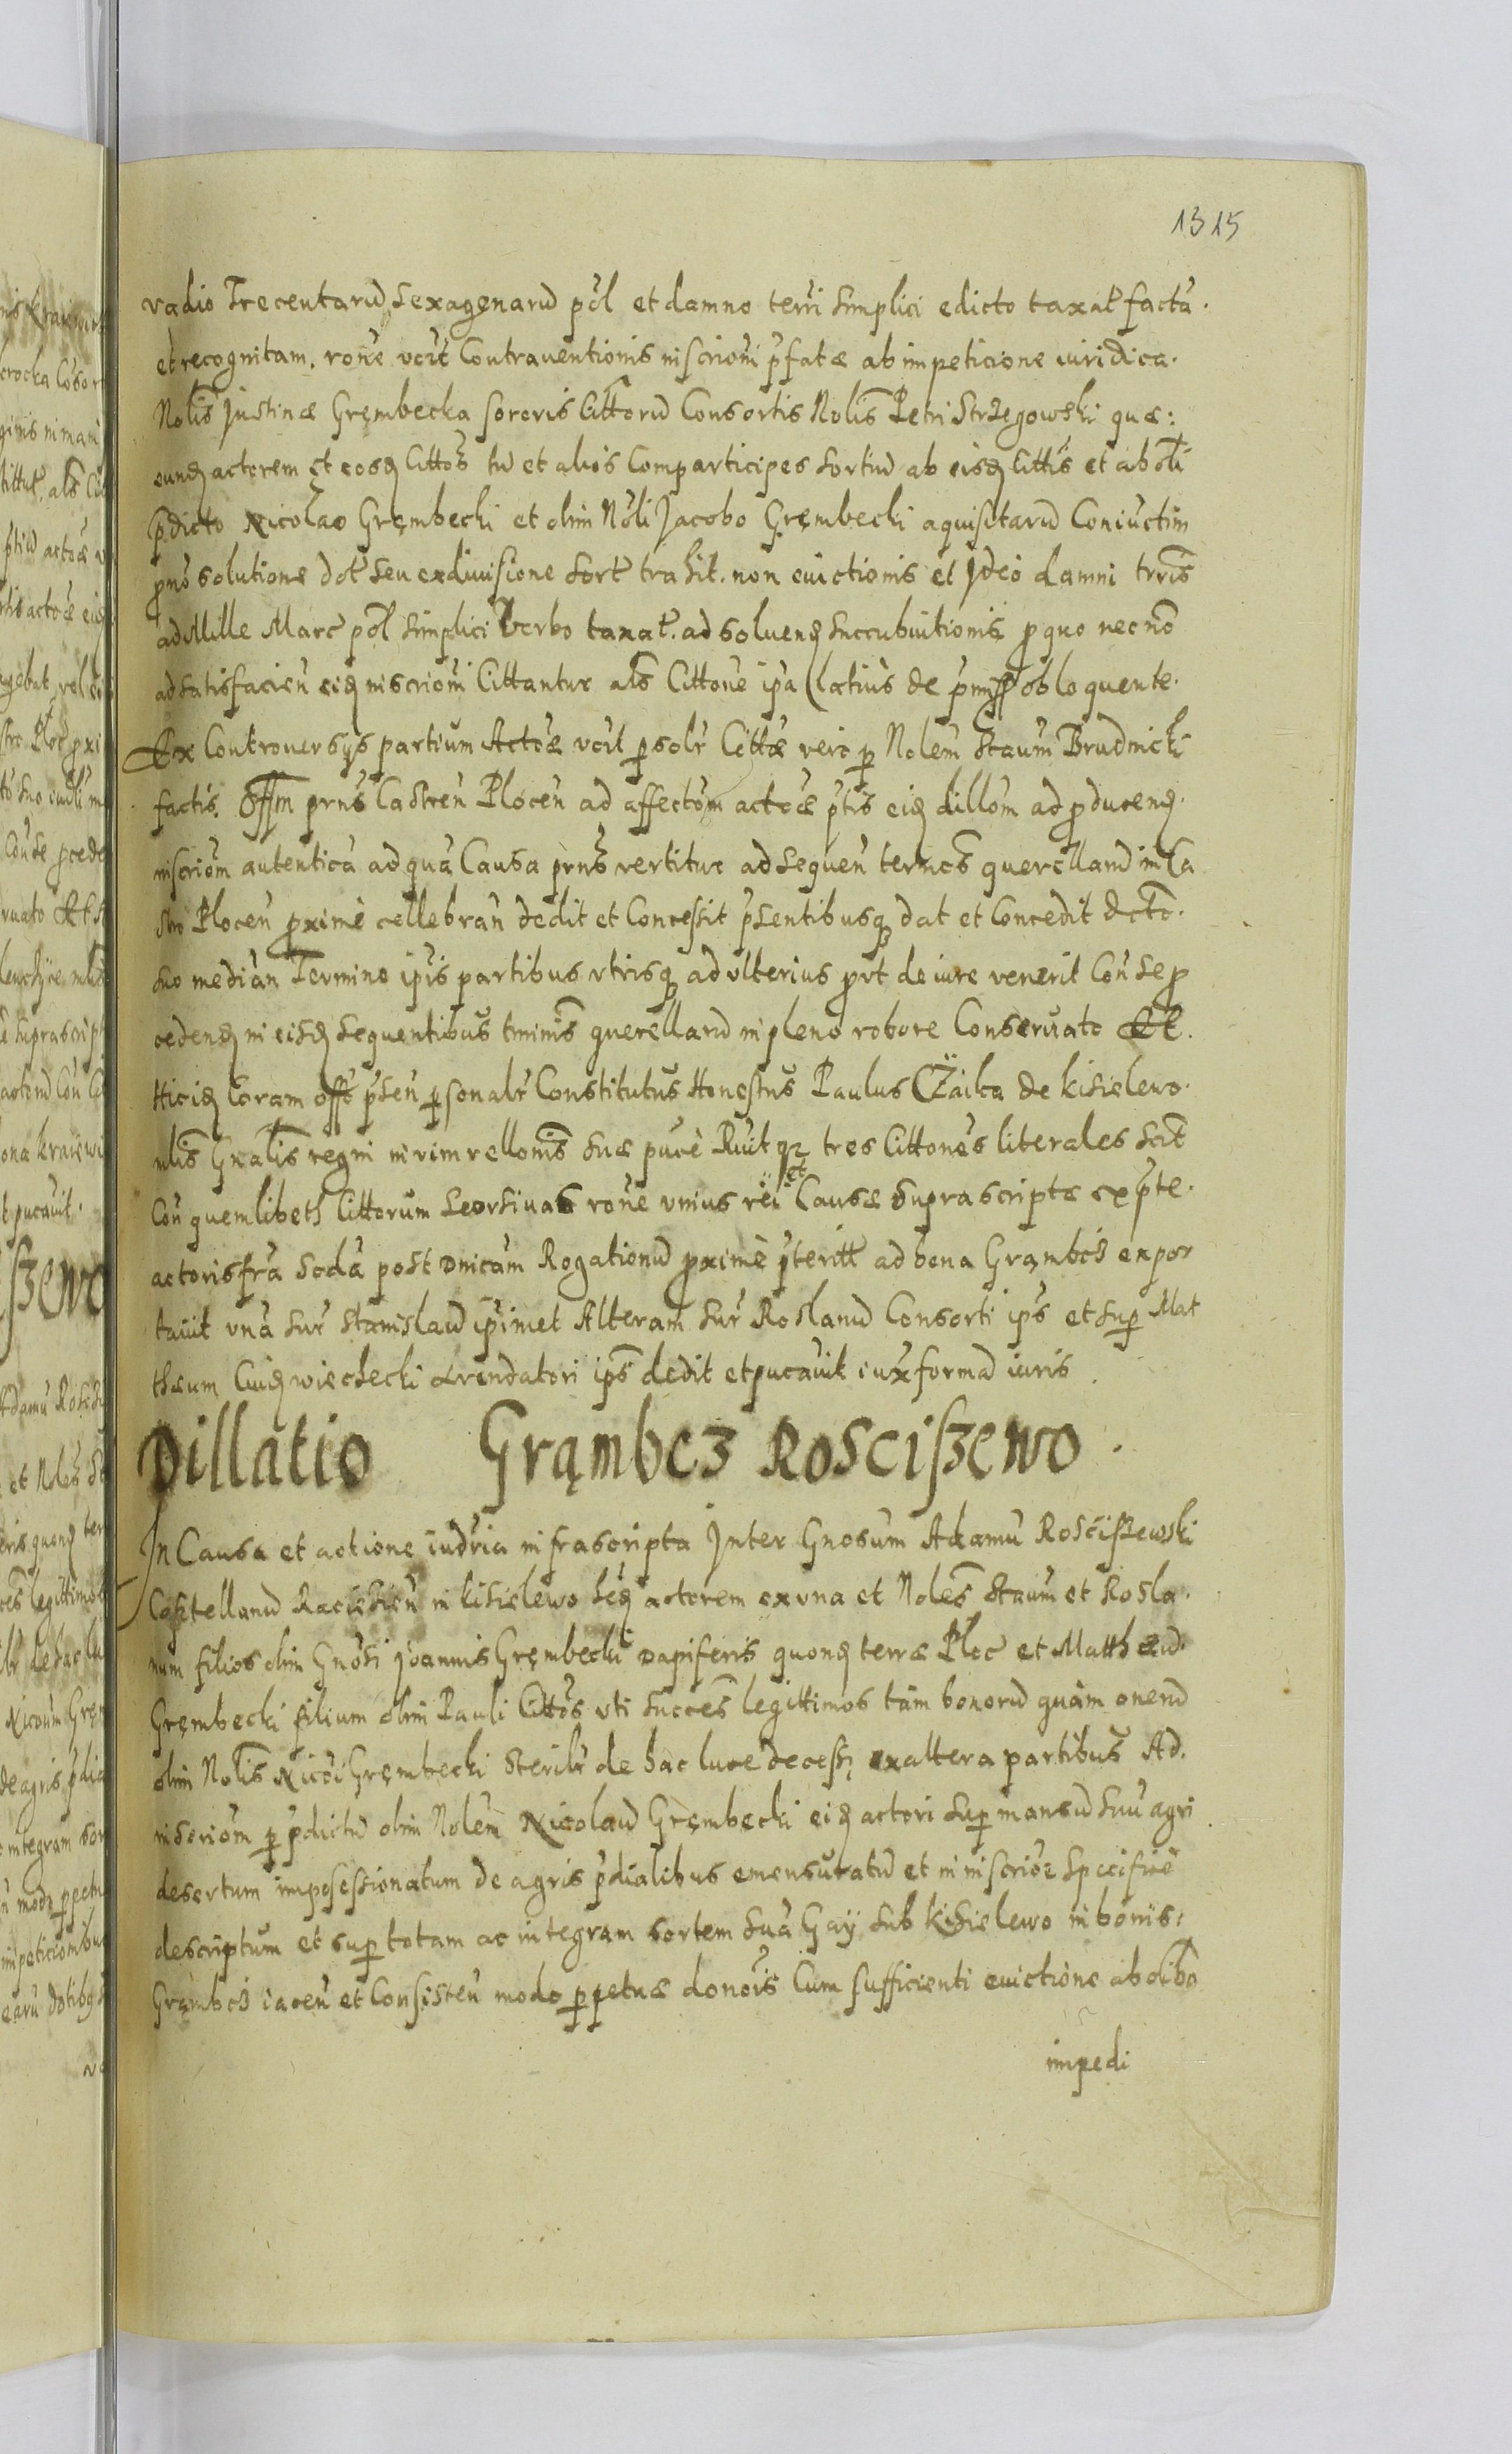 1315
vadio Trecentarũ sexagenarũ pol et damno terri simplici edicto taxat factã.
et recognitam, rone vort Contrauentionis inscrioni pfatæ ab impeticione iuridica.
Nolis Justinæ Grembecka sororis Cittorũ Consortis Nolis Petri Strzegowski quæ:
eund actorem et eosd Cittos tũ et alios Comparticipes sortiũ ab eisd Cittis et ab oli
pdicto Nicolao Grembecki et olim Noli Jacobo Grembecki aquisitarũ Coniuctim
pro solutione dot seu ex diuisione sort trahit. non euictionis et Ideo damni trris
ad Mille Marc pol simplici Verbo taxat. ad soluend succubuitionis pro quo nec nõ
ad satisfacien eid inscrioni Cittantur als Cittone ipa latius de pmiss obloquente.
Ex Controuersys partium Actoæ vort psolr Cittæ vero p Nolem Staum Brudnicki
factis. Offm prns Castren Plocen ad affectom actoæ ptis eid dillom ad pducend.
inscriom autenticã ad quã Causa prns vertitur ad sequen termos querellarũ in Ca
stro Plocen proxime cellebran dedit et Concessit psentibusq dat et Concedit dcto.
suo median Termino ipis partibus vtrisq ad vlterius prt de iure venerit Con se p
cedend in eisd sequentibus tminis querellarũ in pleno robore Conseruato Et.
Hicid Coram offo psen psonalr Constitutus Honestus Paulus Czaika de kisielewo.
nlis Gnalis regni in vim rellonis suæ pure Rcuit qz tres Cittones literales scit
Con quemlibeth Cittorum seorsiuas rone vnius rei et Causæ suprascriptæ ex pte.
actoris fra scda post dnicam Rogationũ proxime pteritt ad bona Grambcz expor
tauit vnã sur Stanislaũ ipimet Alteram sur Roslanũ Consorti ips et sup Mat
thæum Cuid wiechecki arendatori ips dedit et pucauit iux formã iuris.
Dillatio Grąmbcz Rosciszewo.
In Causa et actione iudria infrascripta Inter Gnosum Adamũ Rosciszewski
Castellanũ Raciazien in kisielewo hęd actorem ex vna et Noles Staum et Rosla.
num filios olim Gnosi Joannis Grembecki Dapiferis quond terræ Ploc et Matthæũ.
Grembecki filium olim Pauli Cittos vti succes legittimos tam bonorũ quam onerũ
olim Nolis Nicoi Grembecki sterilr de hac luce decess ex altera partibus Ad.
inscriom p pdictũ olim Nolem Nicolaũ Grembecki eid actori sup mansũ suũ agri
desertum imposessionatum de agris pdialibus emensuratũ et in inscrioe specifice
descriptum et sup totam ac integram sortem suã Gay sub kisielewo in bonis:
Grambcz iacen et Consisten modo ppetuæ donois Cum sufficienti evictione ab oibo
impedi